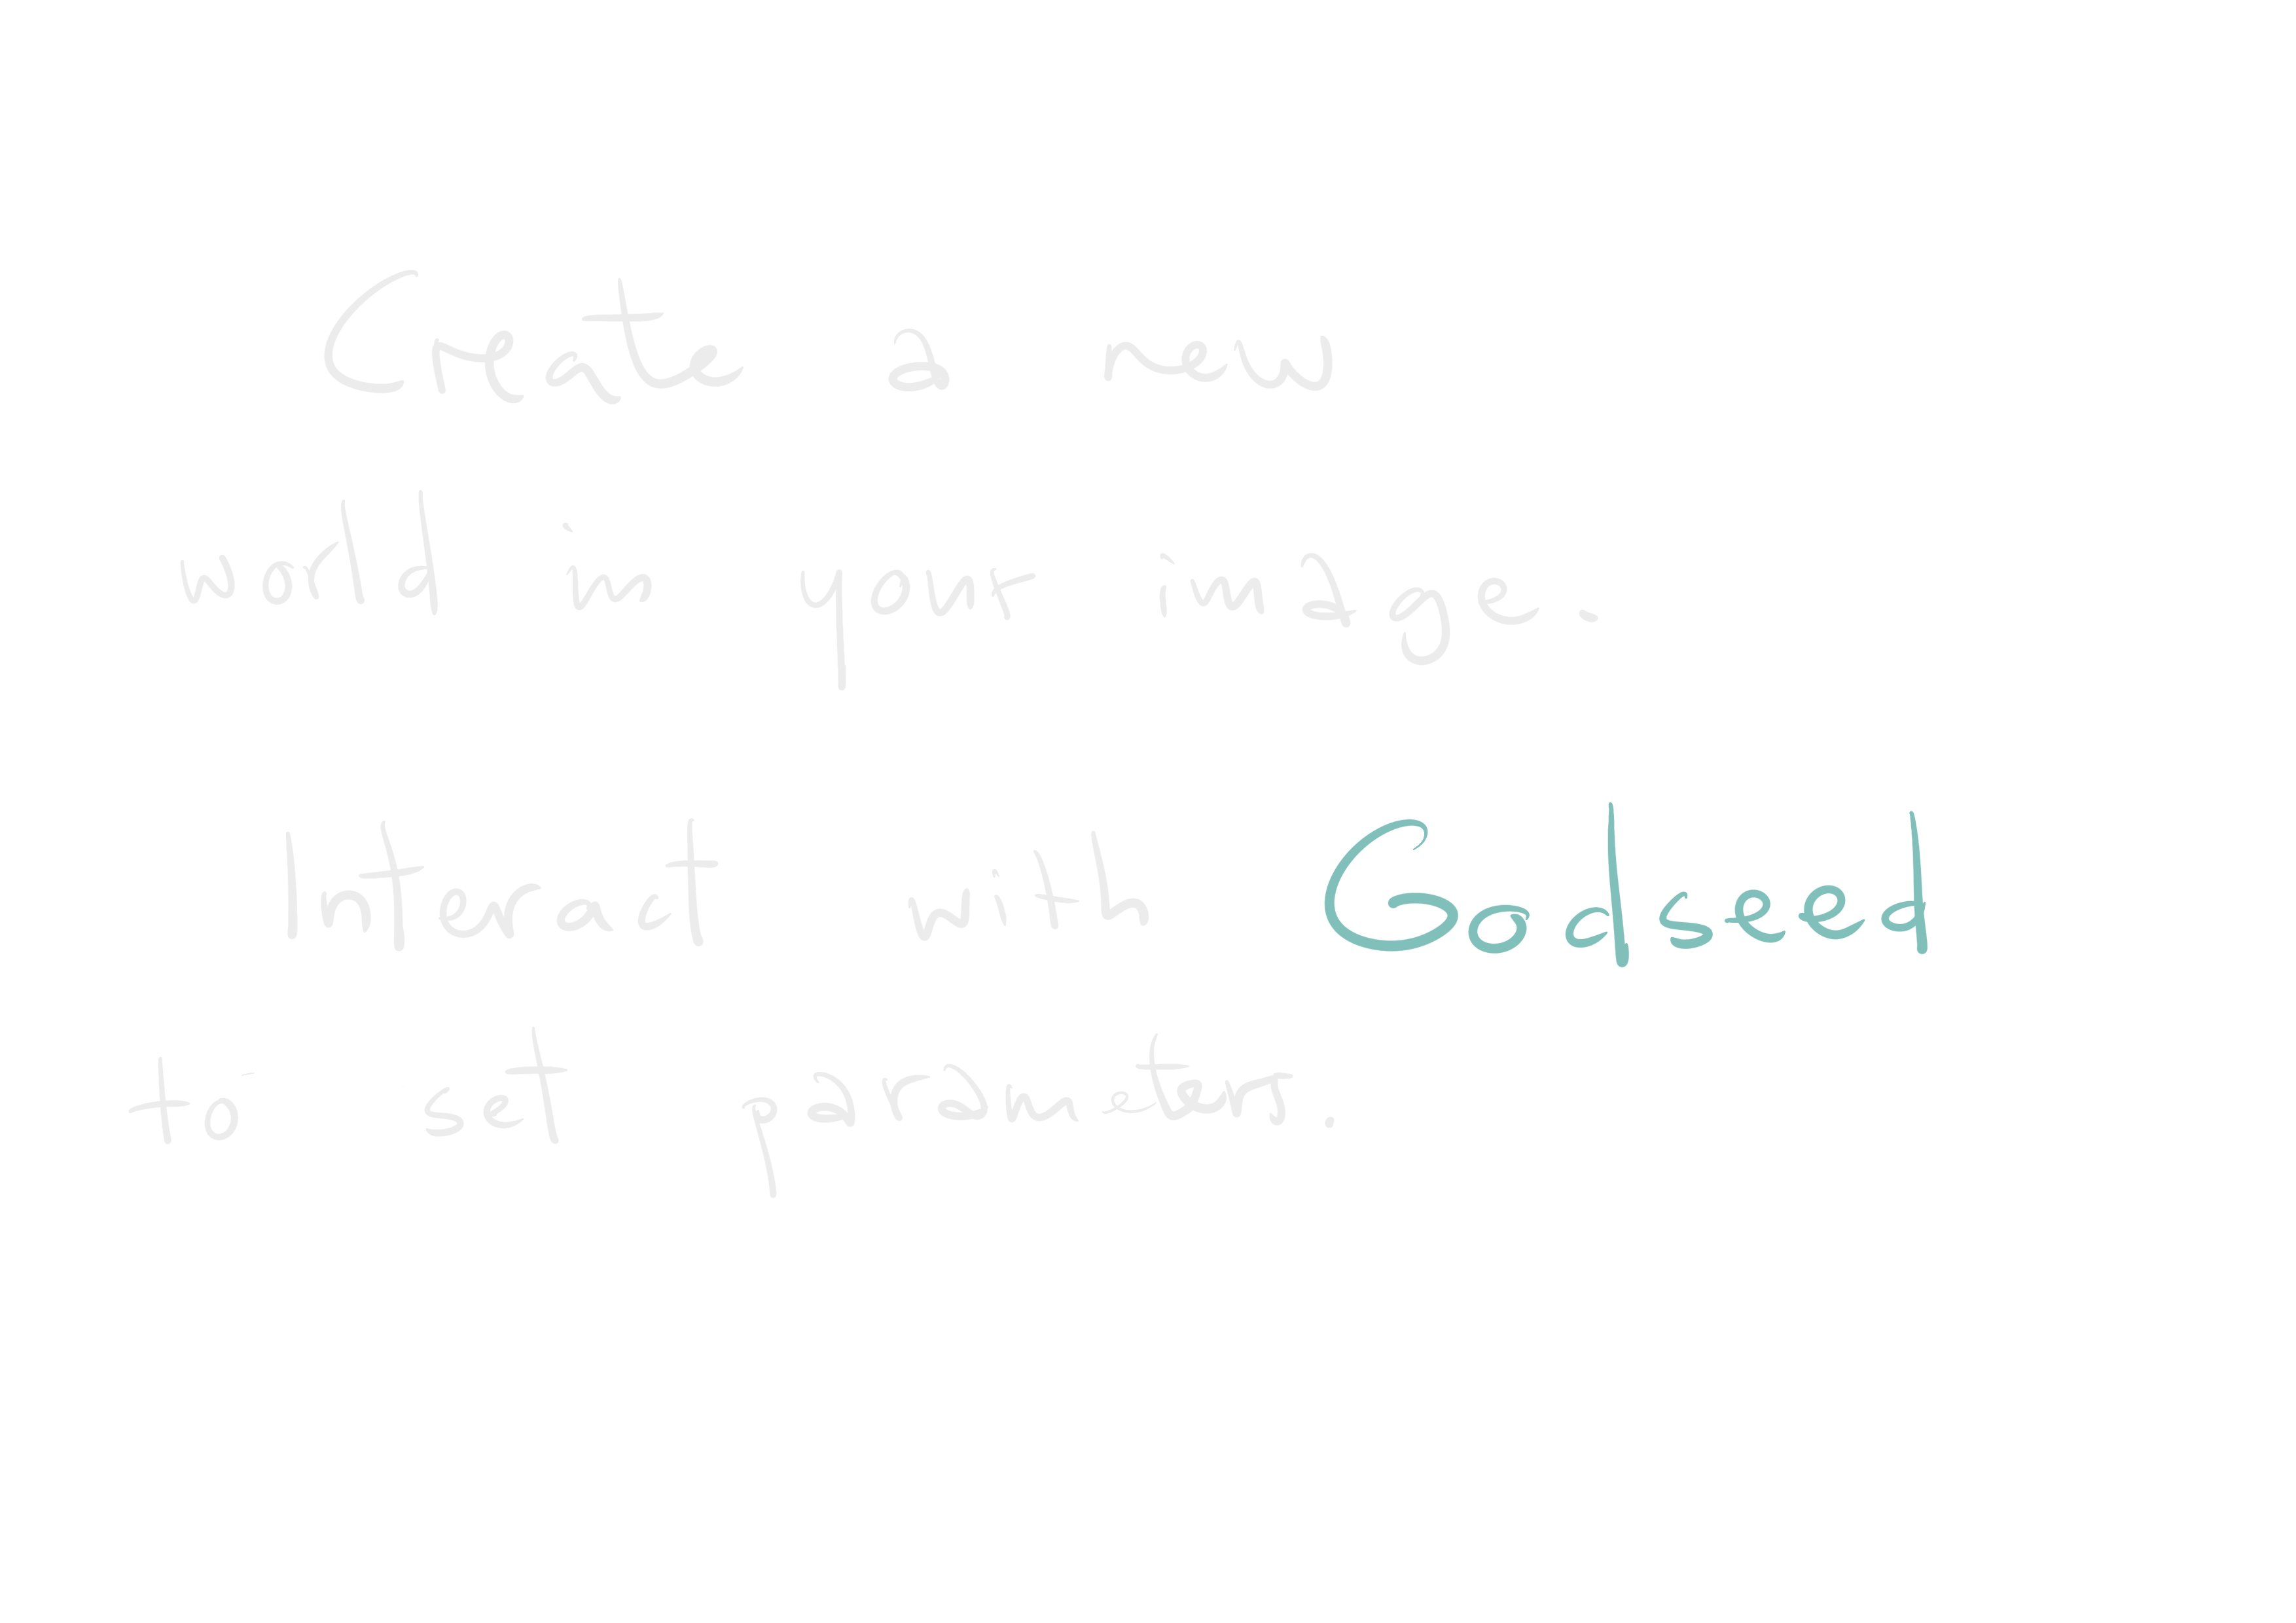 Create a new
world in your image.
Interact with Godseed
to set parameters.